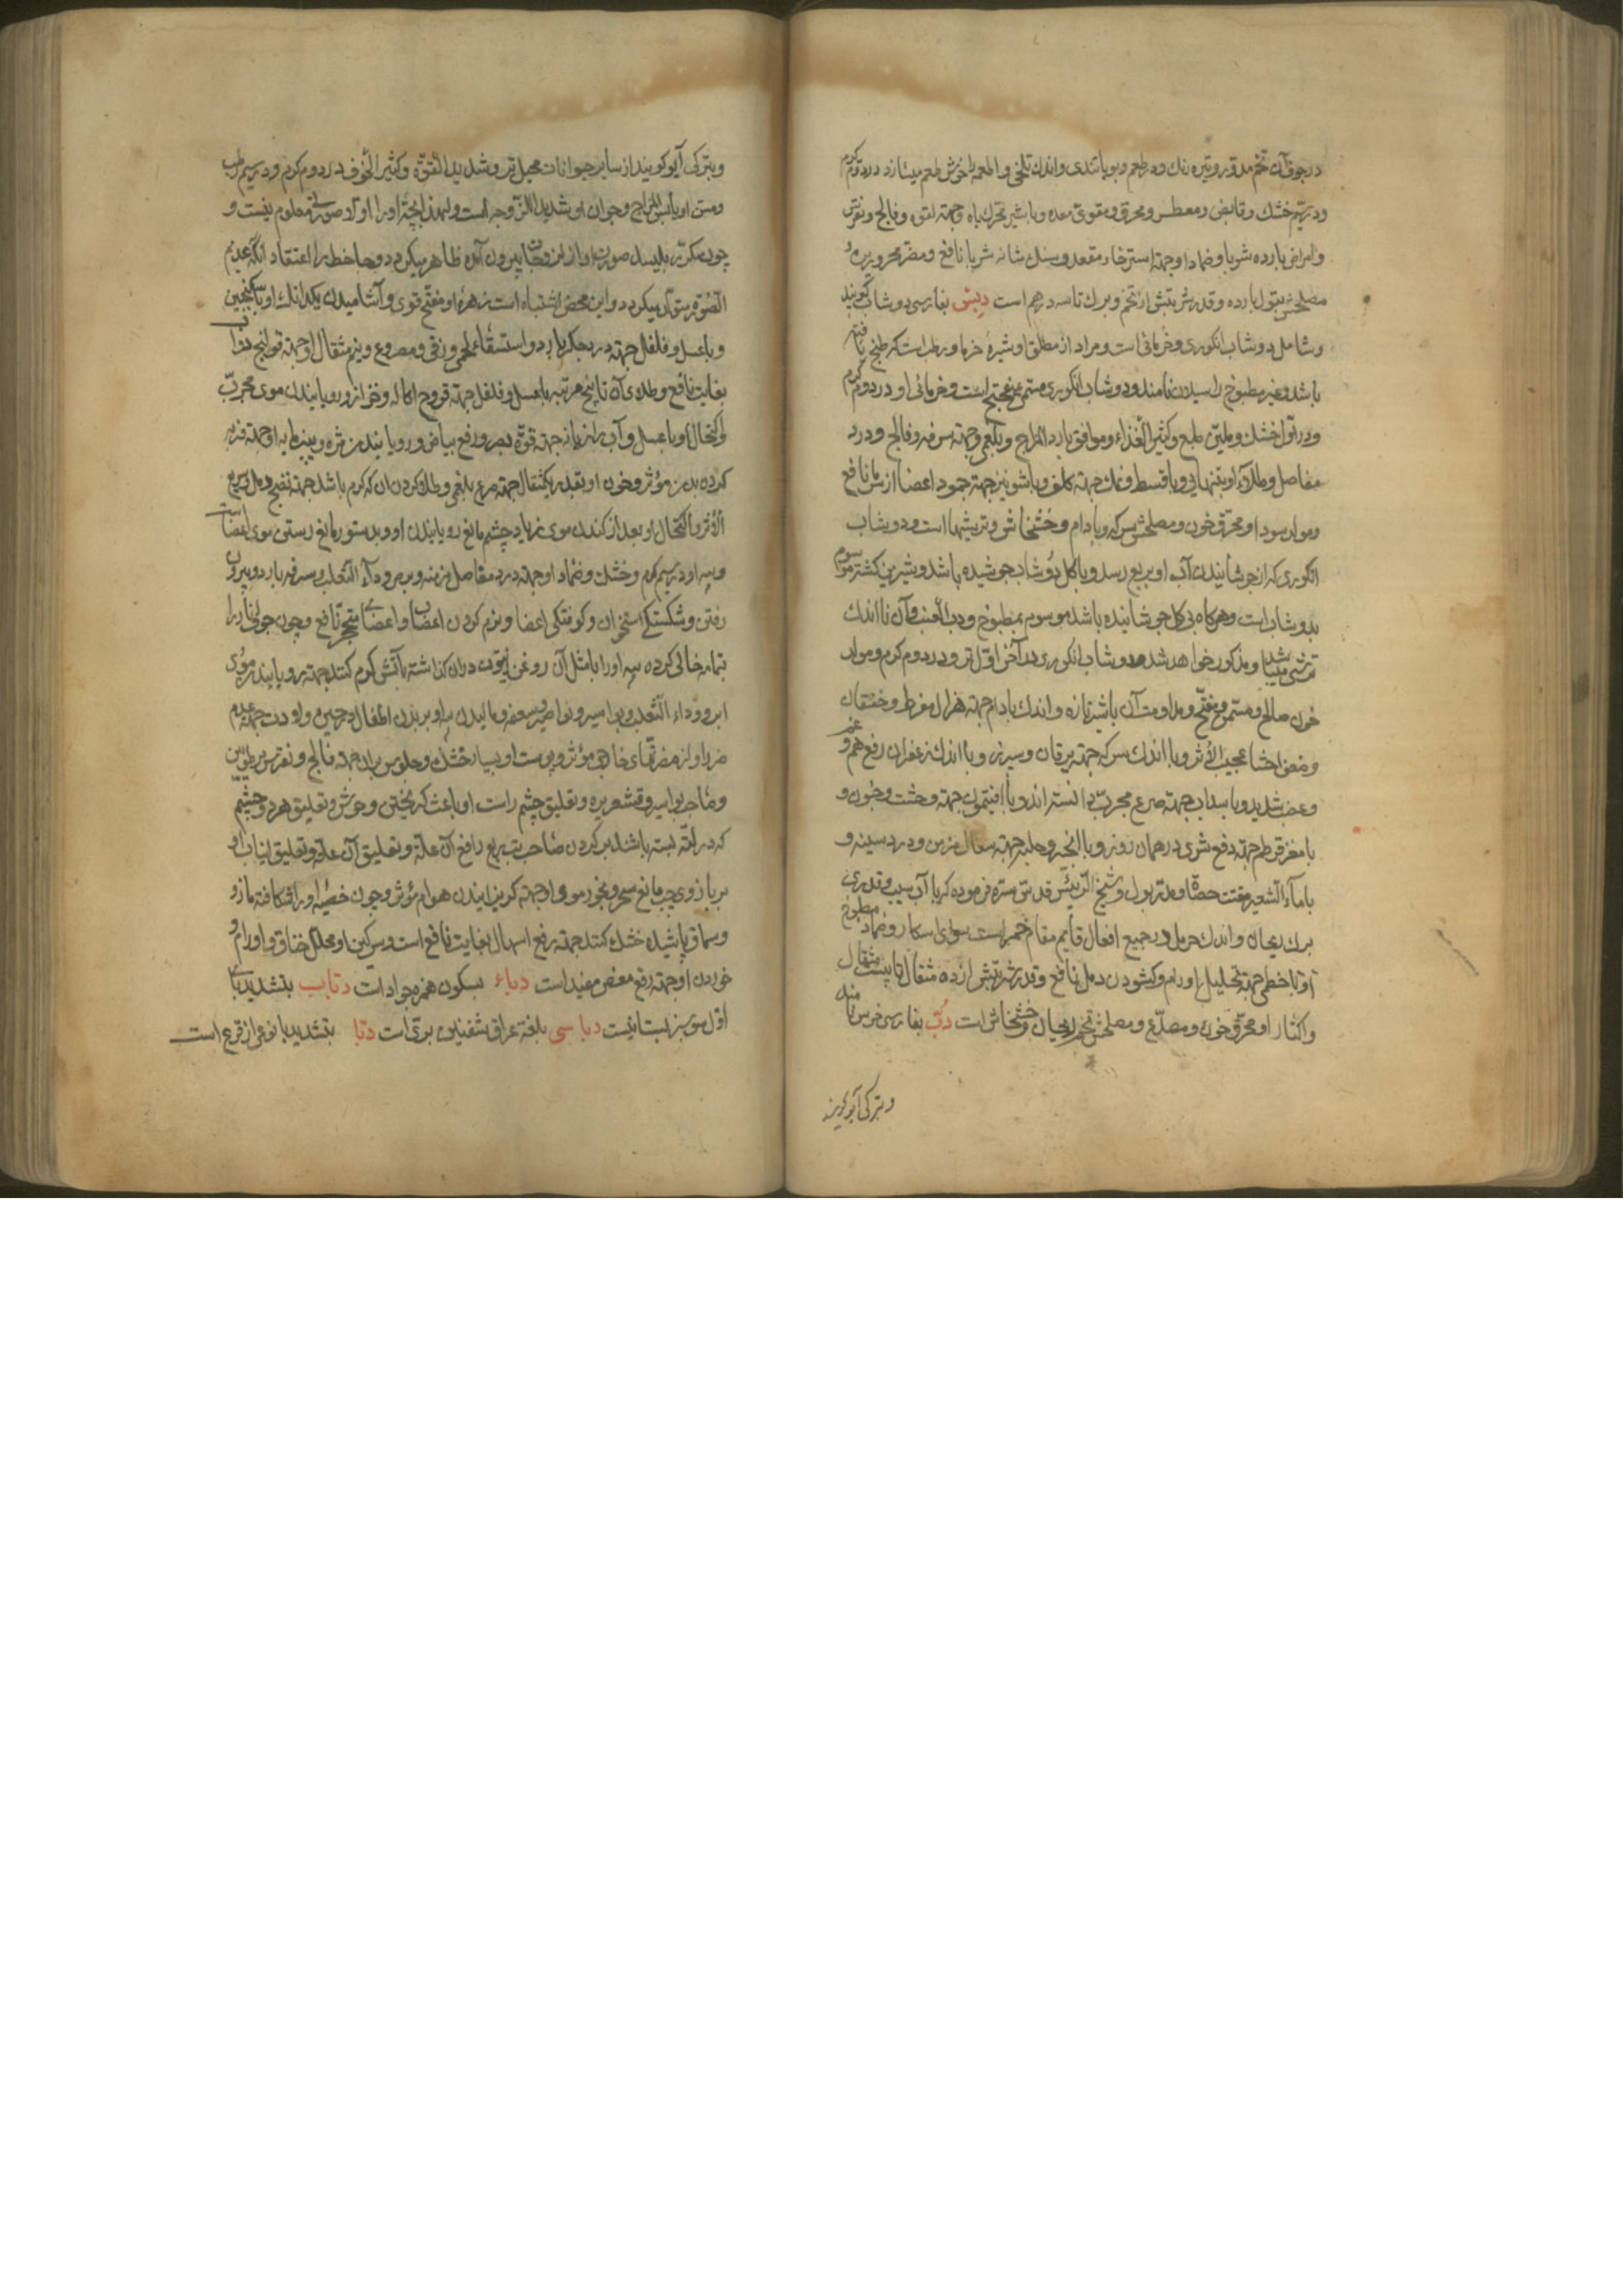 در جوف آن تخم مدور و تیره رنک و در طعم و بو با تندی و اندک تلخی و اطعمه را خوش طعم میسازد در دوم کرم
و در سیم خشک و قابض و معطس و محرق و مقوی معده و با شیر محرک باه و جهته لقوه و فالج و نقرس
و امراض بارده شربا و ضمادا و جهته استرخاء مقعد و سنک مثانه شربا نافع و مضر محرورین و
مصلحش بقول بارده و قدر شربتش از تخم و برک تا سه درهم است دبس بفارسی دوشاب کویند
و شامل دوشاب انکوری و خرمائی است و مراد از مطلق او شیرهٔ خرما و رطب است که طبخ یافته
باشد و غیر مطبوخ را سیلان نامند و دوشاب انکوری مسمی بمیفختج است و خرمائی او در دوم کرم
و در اول خشک و ملین طبع و کثیر الغذاء و موافق بارد المزاج و بلغمی و جهته سرفه و فالج و درد
مفاصل و طلای او بتنهائی و با قسط و نمک جهته کلف و با شونیز جهته جمود اعضا از سرما نافع
و مولد سودا و محرق خون و مصلحش سرکه و بادام و خشخاش و ترشیها است و دوشاب
انکوری که از جوشانیدن آب او بربع رسد و با کل دوشاب جوشیده باشد و شیرین کشته موسوم
بدوشاب است و هرکاه بی کل جوشانیده باشد موسوم بمطبوخ و رب العنب و آن با اندک
ترشی میباشد و مذکور خواهد شد و دوشاب انکوری در آخر اول تر و در دوم کرم و مولد
خون صالح و مسمن و مفتح و مداومت آن با شیر تازه و اندک بادام جهته هزال مفرط و خفقان
و ضعف احشا عجیب الاثر و با اندک سرکه جهته یرقان و سپرز و با اندک زعفران رفع هم و غم
و غضب شدید و با سداب جهته صرع مجرب دانسته‌اند و با افتیمون جهته وحشت و جنون و
با مغز قرطم جهته دفع شری در همان روز و با انجیر و حلبه جهته سعال مزمن و درد سینه و
با ماء الشعیر مفتت حصاة و مدر بول و شیخ الرئیس قدس سره فرموده که با آب سیب و قدری
برک ریحان و اندک حرمل در جمیع افعال قایم مقام خمر است سوای اسکار و ضماد مطبوخ
او با خطمی جهته تحلیل اورام و کشودن دمل نافع و قدر شربتش از ده مثقال تا بیست مثقال
و اکثار او محرق خون و مصدع و مصلحش تخم ریحان و خشخاش است دب بفارسی خرس نامند
وبترکی آیو کویند
وبترکی آیو کویند از سایر حیوانات محیل‌تر و شدید القوة و کثیر الخوف در دوم کرم و در سیم رطب
و مسن او یابس المزاج و جوان او شدید اللزوجه است و لهذا بچهٔ او را اولا صورتی معلوم نیست و
چون مکرر بلیسد صورت او از لزوجات بیرون آمده ظاهر میکردد و جاحظ را اعتقاد آنکه عدیم
الصورة متولد میکردد و این محض اشتباه است زهرهٔ او مفتح قوی و آشامیدن یکدانک او با سکنجبین
و با عسل و فلفل جهته درد جکر بارد و استسقاء لحمی و زقی و مصروع و نیم مثقال او جهته قولنج
بغایت نافع و طلای آن تا پنج مرتبه با عسل و فلفل جهته قروح آکاله و خزاز و رویانیدن موی مجرب
و اکتحال او با عسل و آب رازیانه جهته قوة بصر و رفع بیاض و رویانیدن مژه و پنیرمایه او جهته فربه
کردن بدن مؤثر و خون او بقدر یکمثقال جهته صرع بلغمی و طلا کردن آن که کرم باشد جهته نضج دمل سریع
الاثر و اکتحال او بعد از کندن موی زیاد چشم مانع رویانیدن او و بدستور مانع رستن موی اعضاست
و پیه او در سیم کرم و خشک و ضماد او جهته درد مفاصل مزمنه و برص و داء الثعلب و سرفه بارد و بیرون
رفتن و شکستکی استخوان و کوفتکی اعضا و نرم کردن اعصاب و اعضای متحجر نافع و چون جوف انار را
تمام خالی کرده پیه او را با مثل آن روغن زیتون در آن کذاشته بآتش کرم کنند جهته رویانیدن موی
ابرو و داء الثعلب و بواسیر و نواصیر و سعفه و مالیدن پیه او بر بدن اطفال در حین ولادت جهته عدم
ضرر او از مضرتهای خارجی مؤثر و پوست او بسیار خشک و جلوس بر آن جهته فالج و نقرس مرطوبین
و صاحب بواسیر و قشعریره و تعلیق چشم راست او باعث کریختن وحوش و تعلیق هر دو چشم
که در لته بسته باشند بر کردن صاحب تب ربع رافع آن علة و تعلیق آن علة و تعلیق انیاب او
بر بازوی چپ مانع سحر و بخور موی او جهته کریزانیدن هوام مؤثر و چون خصیهٔ او را شکافته مازو
و سماق پاشیده خشک کنند جهته رفع اسهال بغایت نافع است و سرکین او محلل خناق و اورام و
خوردن او جهته رفع مغص مفید است دباء بسکون همزه جراد است دباب بتشدید با
اول موسبز بستانیست دباسی بلغة عراق شفنین بری است دبا بتشدید با نوعی از قرع است